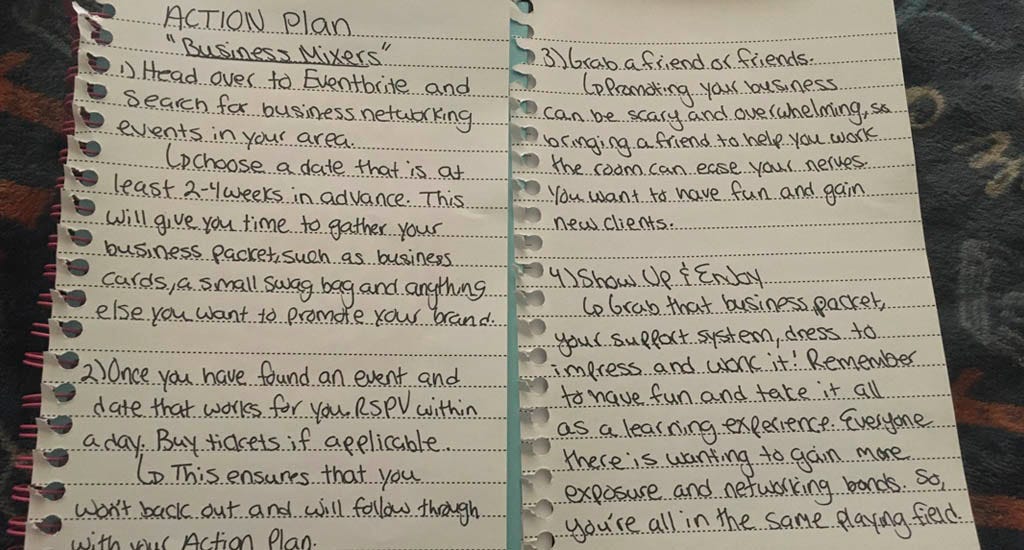 ACTION Plan
"Business Mixers"
1) Head over to Eventbrite and
Search for business networking
events in your area.
↳ choose a date that is at
least 2-4 weeks in advance. This
will give you time to gather your
business packet, such as business
cards, a small swag bag and anything
else you want to promote your brand.
2) Once you have found an event and
date that works for you. RSPV within
a day. Buy tickets if applicable.
↳ This ensures that you
won't back out and will follow through
with your Action Plan.
3) Grab a friend or friends.
↳ Promoting your business
can be scary and overwhelming, so
bringing a friend to help you work
the room can ease your nerves.
You want to have fun and gain
new clients.
4) Show Up & Enjoy
↳ Grab that business packet,
your support system, dress to
impress and work it! Remember
to have fun and take it all
as a learning experience. Everyone
there is wanting to gain more
exposure and networking bonds. So,
you're all in the same playing field